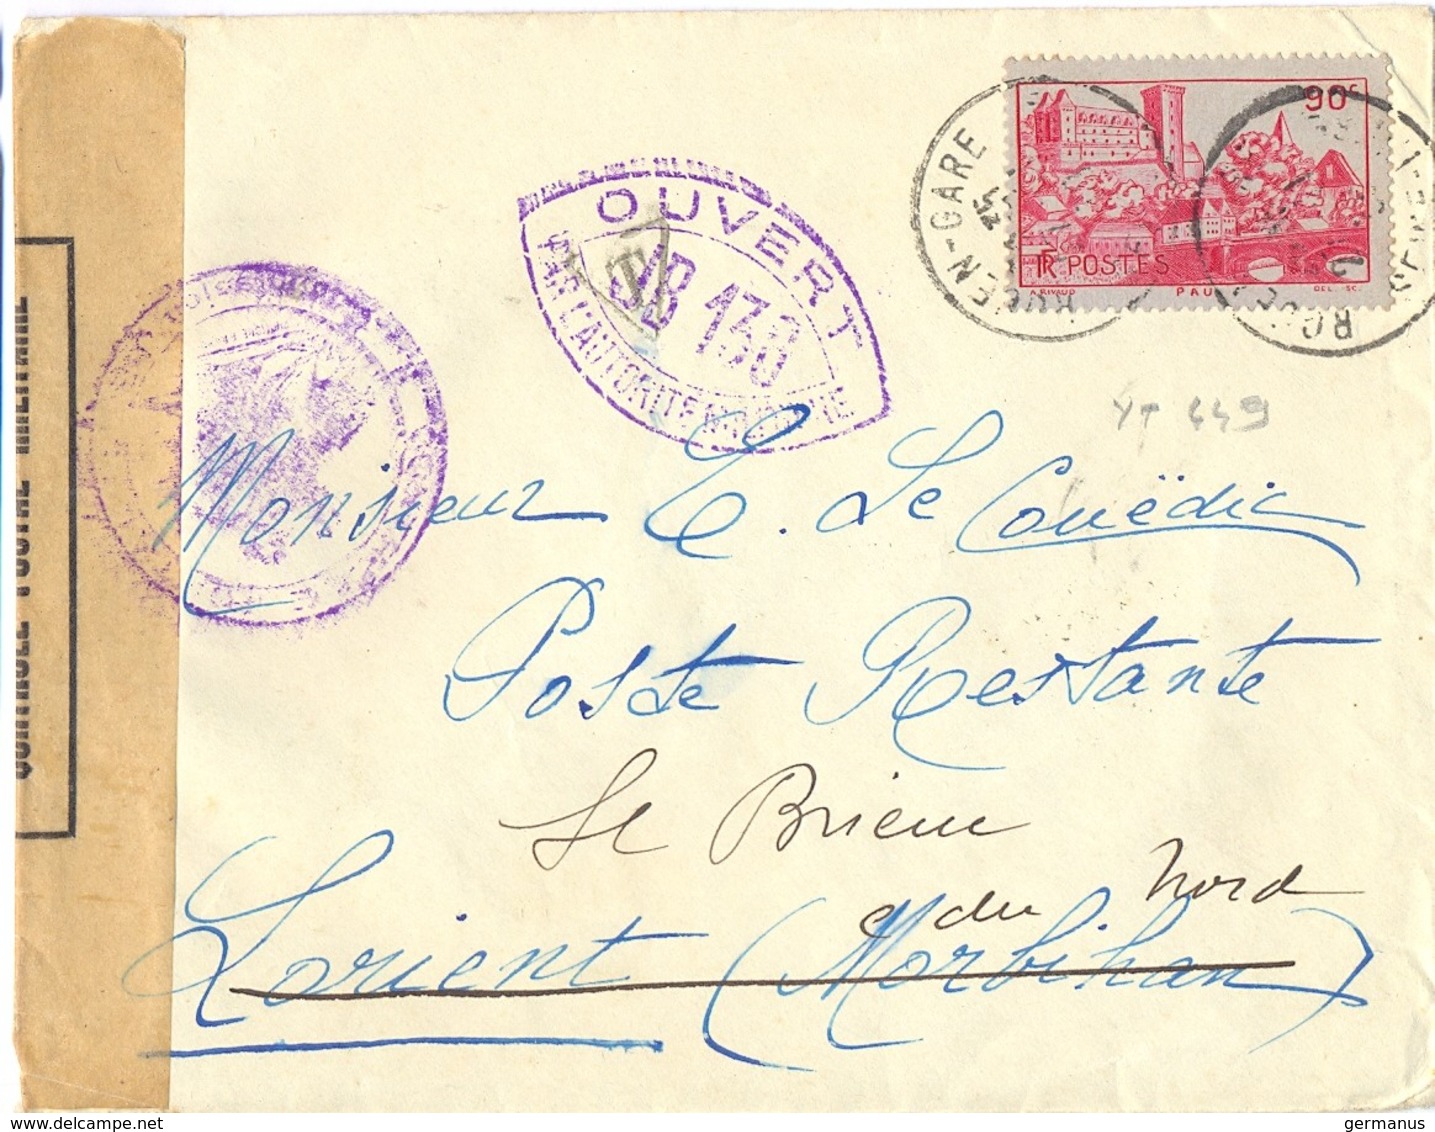 CONTROLE POSTAL MILITAIRE
OUVERT
PAR L'AUTORITÉ MILITAIRE
JB 138
T
ROUEN-GARE
90c
RF POSTES
A. RIVAUD PAU DEL. SC.
YT 449
Monsieur E. Le Couëdic
Poste Restante
St Brieuc
C du Nord
Lorient (Morbihan)
germanus
delcampe.net